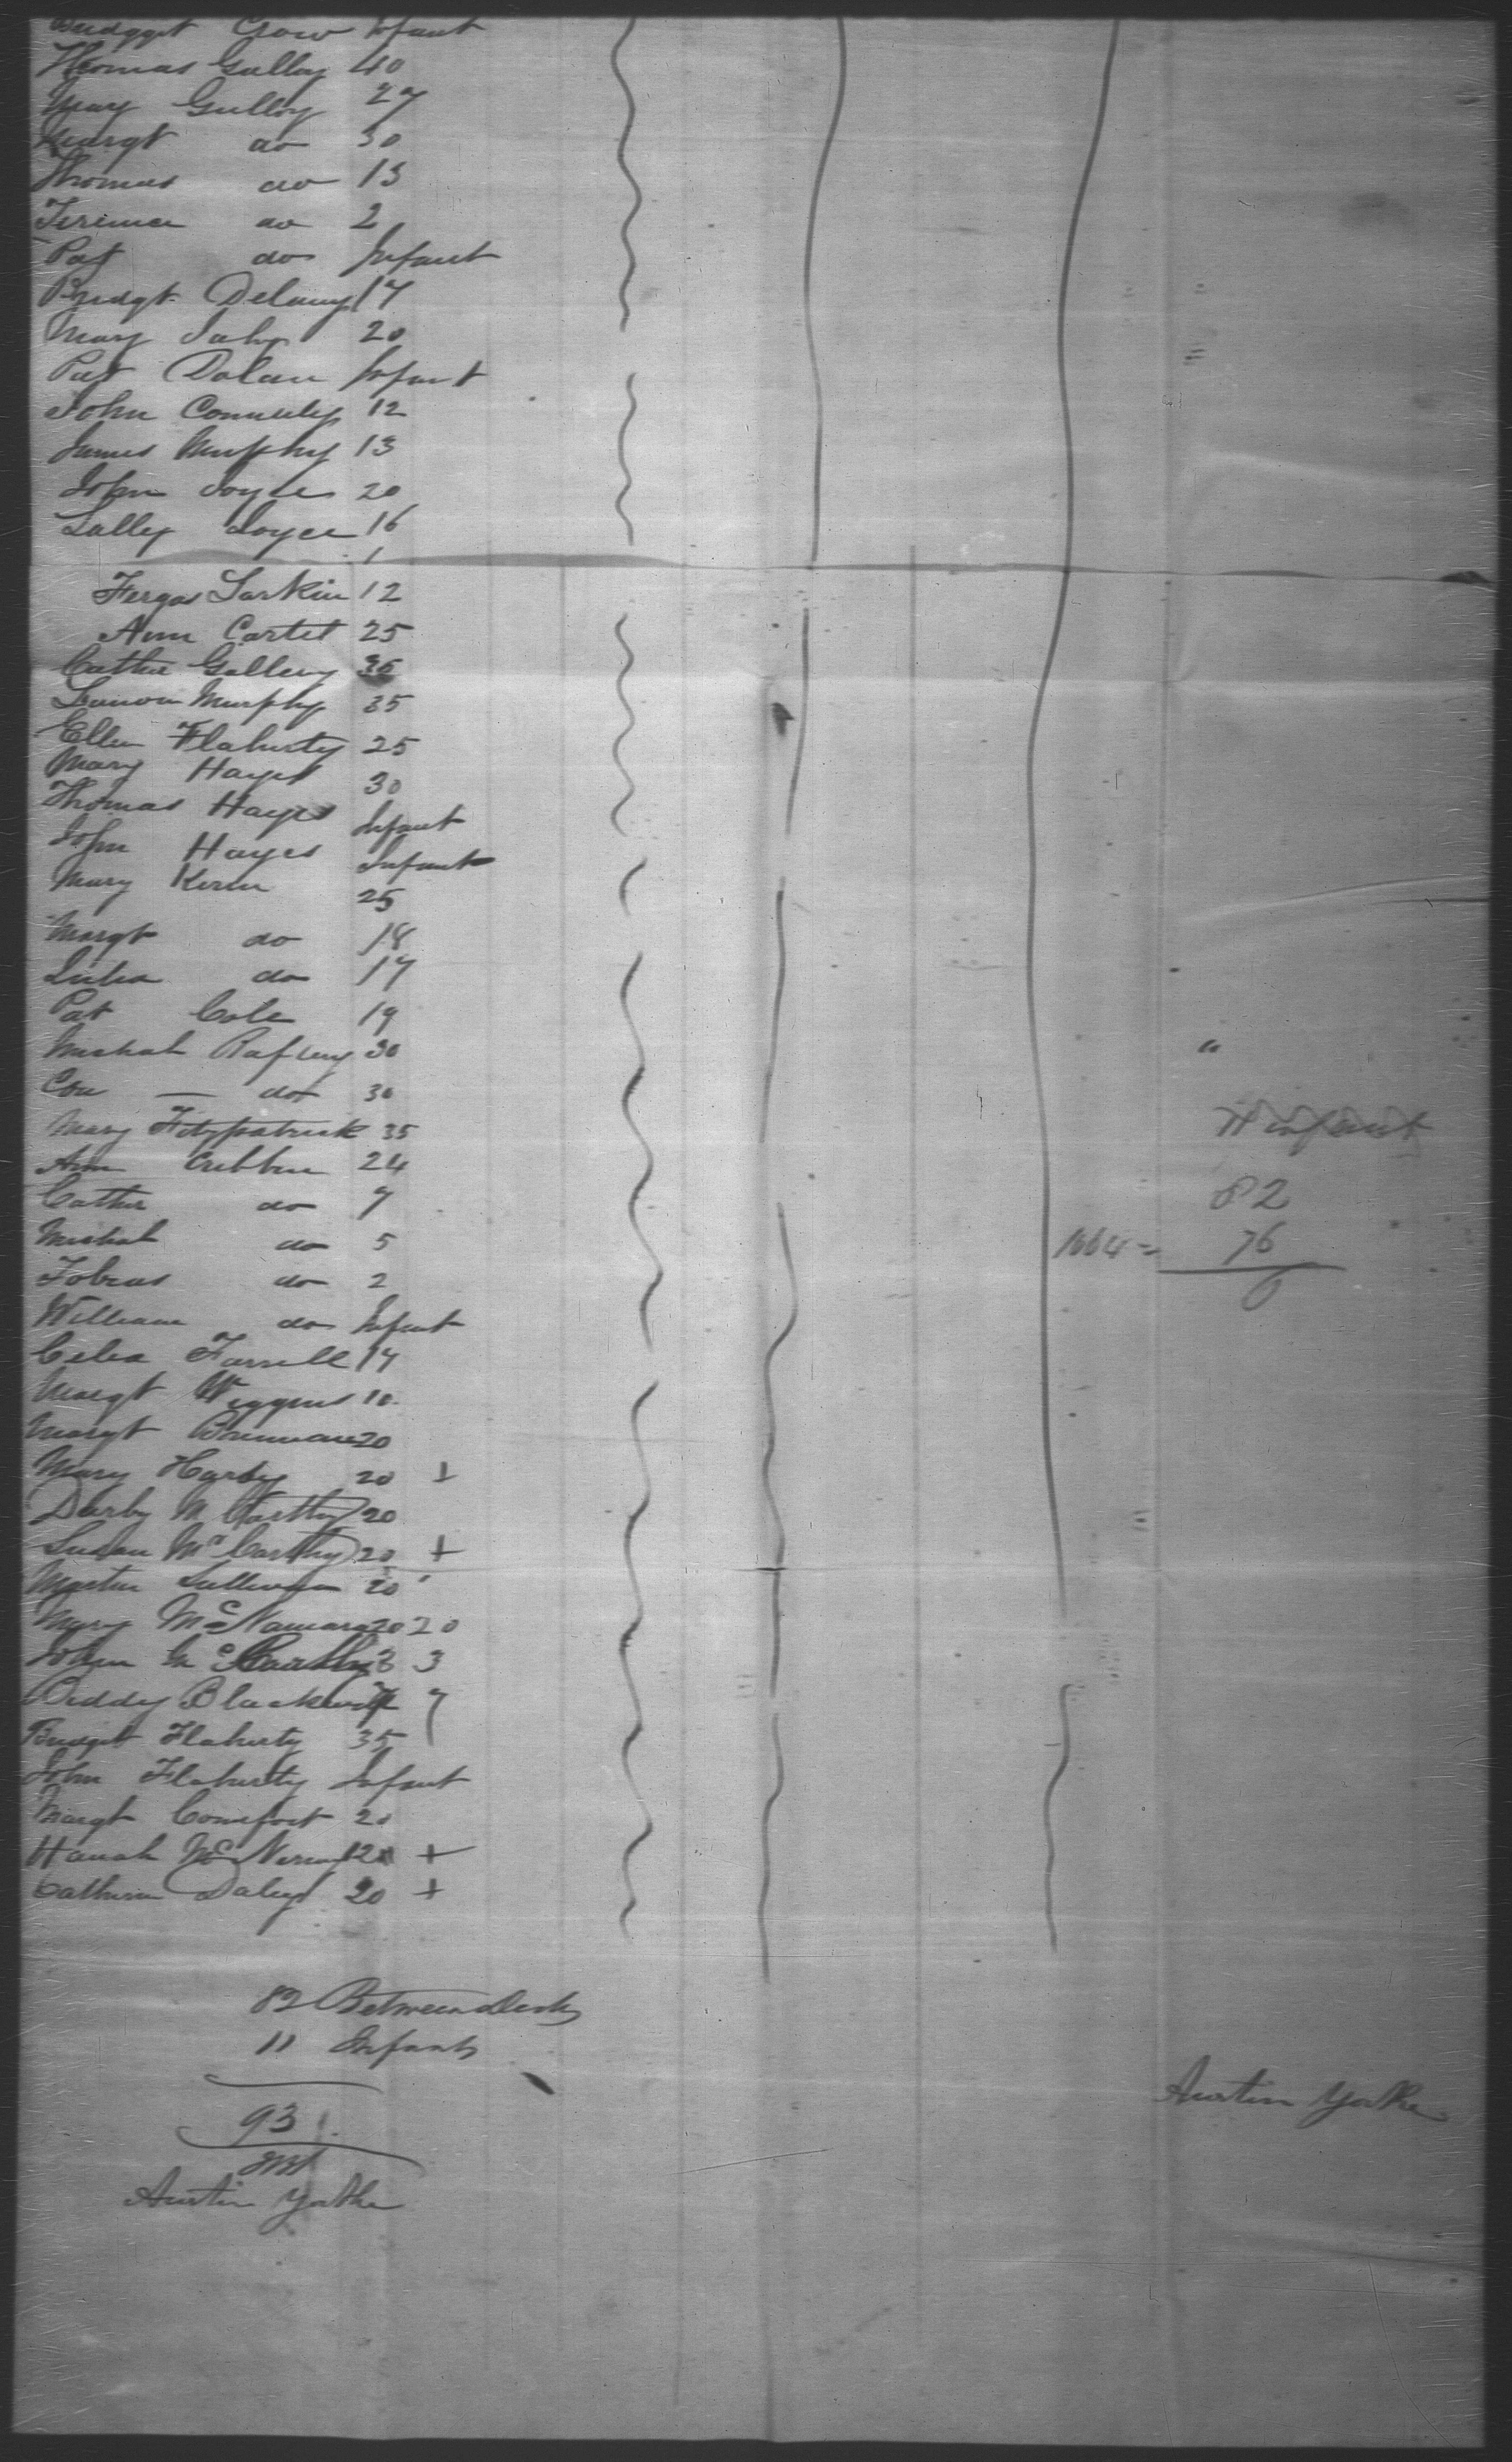 Bridgget Gow Infant
Thomas Gulloy 40
Mary Gulloy 27
Margt do 30
Thomas do 13
Terence do 2
Pat do Infant
Bridgt Delany 17
Mary 20
Pat Dolan Infant
John Connelly 12
James Murphy 13
John Joyce 20
Sally Joyce 16
Fergos Larkin 12
Ann Carter 25
Cathe Gallery 35
Murphy 35
Ellen Flaherty 25
Mary Hayes 30
Thomas Hayes Infant
John Hayes Infant
Mary Keren 25
Margt do 18
Julia do 17
Pat Cole 19
Michal Raferey 30
Con — do 30
Mary Fitzpatrick 35
Ann Cribben 24
Cathe do 7
Michal do 5
Tobias do 2
William do Infant
Celia Farrell 14
Margt Wiggins 10
Margt Brennan 20
Mary Harty 20 +
Darby McCarthy 20
Susan McCarthy 20 +
Martin Sullivan 20
Mary McNamara 20 20
John McCarthy 3 3
Biddy Blackwell 7
Bridget Flaherty 35
John Flaherty Infant
Margt Comefort 20
Hanah 20 +
Catherin Daley 20 +
11 infant
82
1664 = 76
6
82 Between decks
11 Infants
93
Austin Yorke
Austin Yorke